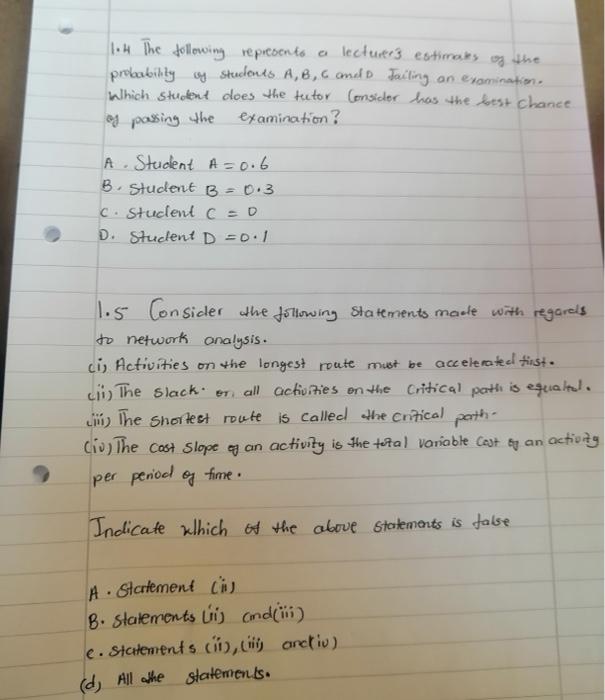 1.4 The following represents a lecturer3 estimates of the
probability of students A, B, C and D failing an examination.
Which student does the tutor Consider has the best chance
of passing the examination?
A. Student A = 0.6
B. Student B = 0.3
C. Student C = 0
D. Student D = 0.1
1.5 Consider the following Statements made with regards
to network analysis.
(i) Activities on the longest route must be accelerated first.
(ii) The slack or all activities on the Critical path is equal.
(iii) The Shortest route is called the critical path.
(iv) The cost slope of an activity is the total variable Cost of an activity
per period of time.
Indicate which of the above statements is false
A. Statement (ii)
B. Statements (ii) and (iii)
c. Statements (ii), (iii) and (iv)
(d) All the statements.